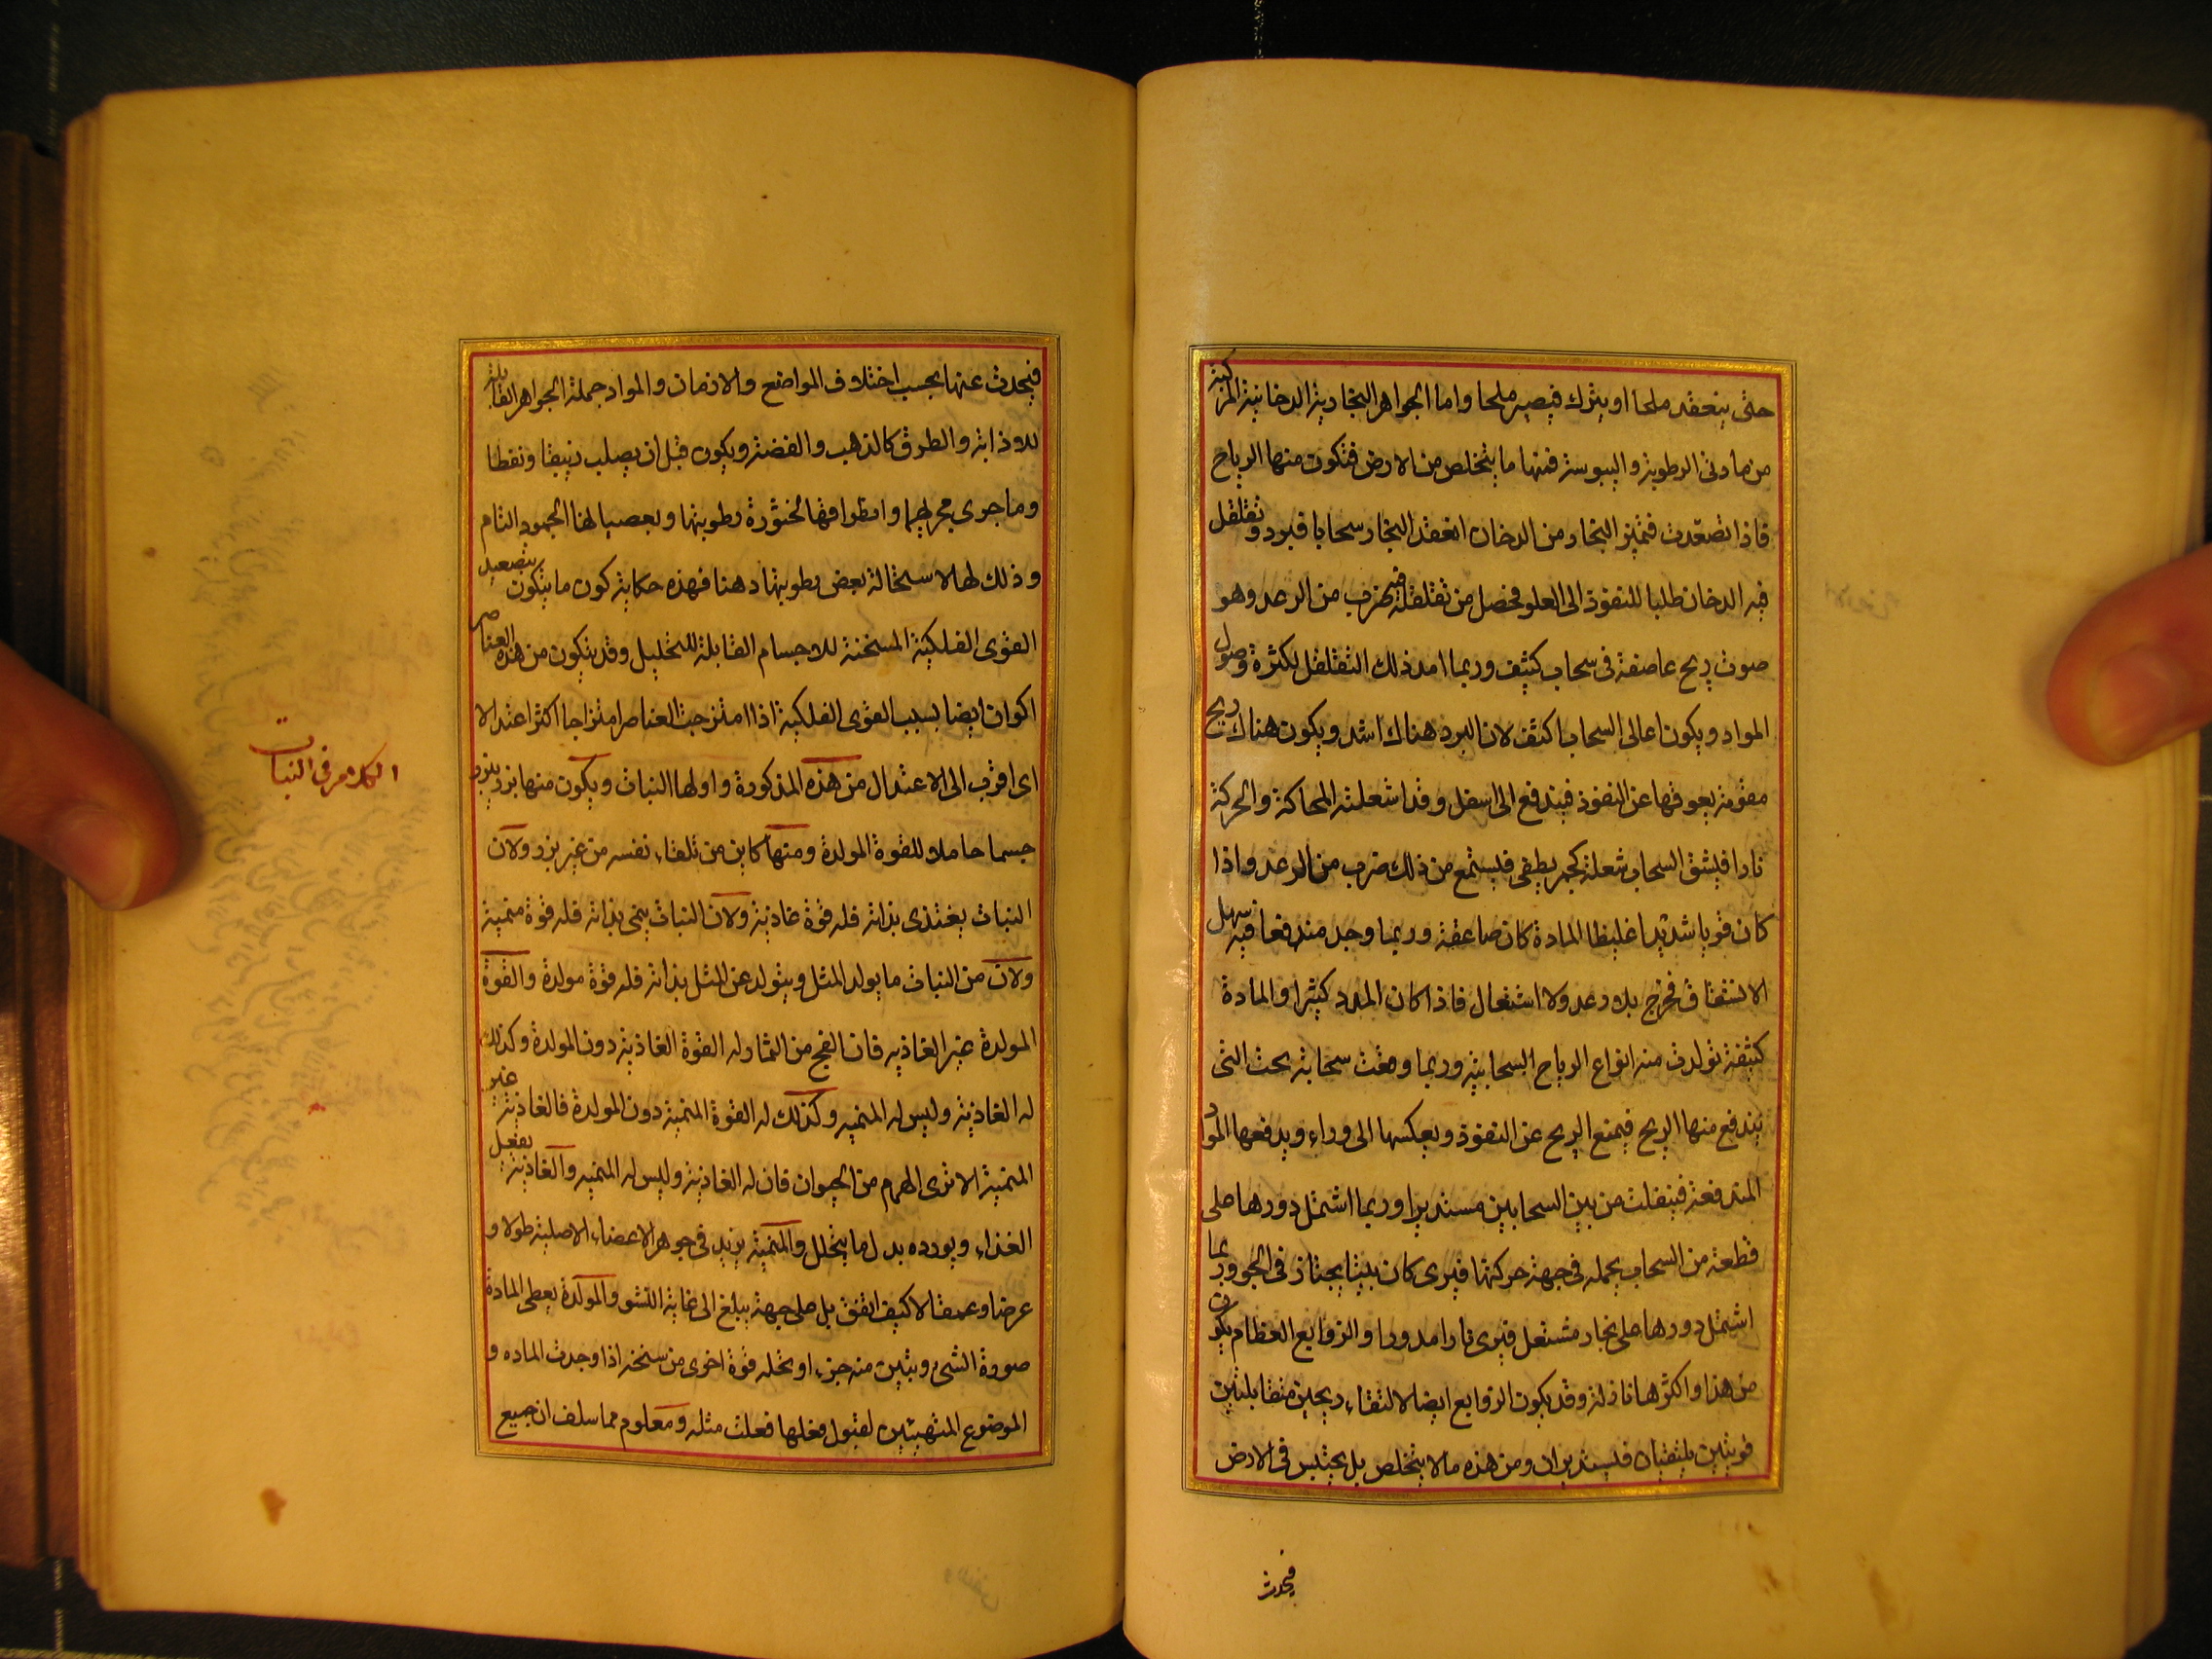 حتى ينعقد ملحا او يترك فيصير ملحا واما الجواهر البخارية الدخانية المركبة
من مادتى الرطوبة واليبوسة فمنها ما يتخلص من الارض فتكون منها الرياح
فاذا تصعدت فتميز البخار من الدخان انعقد البخار سحابا فبرد وتقلقل
فيه الدخان طلبا للنفوذ الى العلو فحصل من تقلقله فيه ضرب من الرعد وهو
صوت ريح عاصفة فى سحاب كثيف وربما امد ذلك التقلقل لكثرة وصول
المواد ويكون اعالى السحاب اكثف لان البرد هناك اشد ويكون هناك ريح
مقومة يعوقها عن النفوذ فيندفع الى اسفل وقد اشعلته المحاكة والحركة
نارا فيشق السحاب شعلة كجمر يطفى فيستمع من ذلك ضرب من الرعد واذا
كان قويا شديدا غليظ المادة كان صاعقة وربما وجد مندفعا فيه سهل
الانشقاق فخرج بلا رعد ولا اشتعال فاذا كان المدد كثيرا والمادة
كثيفة تولدت منه انواع الرياح السحابية وربما وقفت سحابة بحث التى
يندفع منها الريح فيمنع الريح عن النفوذ ويعكسها الى وراء ويدفعها المواد
المندفعة فينفلت من بين السحابين مستديرا وربما اشتمل دورها على
قطعة من السحاب يحمله فى جهة حركتها فيرى كان بيتا يجتاز فى الجو وربما
اشتمل دورها على بخار مشتعل فيرى نارا مدورا والزوابع العظام يكون
من هذا واكثرها نازلة وقد يكون الزوابع ايضا لالتقاء ريحين متقابلتين
قويتين يلتقيان فيستديران ومن هذه ما لا يتخلص بل يحتبس فى الارض
فيحدث
فيحدث عنها بحسب اختلاف المواضع والازمان والمواد جملة الجواهر القابلة
للاذابة والطرق كالذهب والفضة ويكون قبل ان يصلب زيبقا ونفطا
وما جرى مجراهما وانطراقها لخثورة رطوبتها وبعصيانها الجمود التام
وذلك لها لاستحالة بعض رطوبتها دهنا فهذه حكاية كون ما يتكون بتصعيد
القوى الفلكية المسخنة للاجسام القابلة للتحليل وقد يتكون من هذه العناصر
اكوان ايضا بسبب القوى الفلكية اذا امتزجت العناصر امتزاجا اكثر اعتدالا
اى اقرب الى الاعتدال من هذه المذكورة واولها النبات ويكون منها بزر يبزر
جسما حاملا للقوة المولدة ومنها كاين من تلقاء نفسه من غير بزر ولان
النبات يغتذى بذاته فله قوة غاذية ولان النبات ينمى بذاته فله قوة منمية
ولان من النبات ما يولد المثل ويتولد عن المثل بذاته فله قوة مولدة والقوة
المولدة غير الغاذيه فان الفج من الثمار له القوة الغاذية دون المولدة وكذلك
له الغاذية وليس له المنميه وكذلك له القوة المنمية دون المولدة فالغاذية غير
المنمية الا ترى الهرم من الحيوان فان له الغاذية وليس له المنميه والغاذية يفعل
الغذاء ويورده بدل ما يتحلل والمنمية يزيد فى جوهر الاعضاء الاصلية طولا و
عرضا وعمقا لا كيف اتفق بل على جهة يبلغ الى غاية النشو والمولدة يعطى المادة
صورة الشى وتبين منه جزء او تحله قوة اخرى من سنخه اذا وجدت الماده و
الموضوع المتهيئين لقبول فعلها فعلت مثله ومعلوم مما سلف ان جميع
الكلام فى النبات